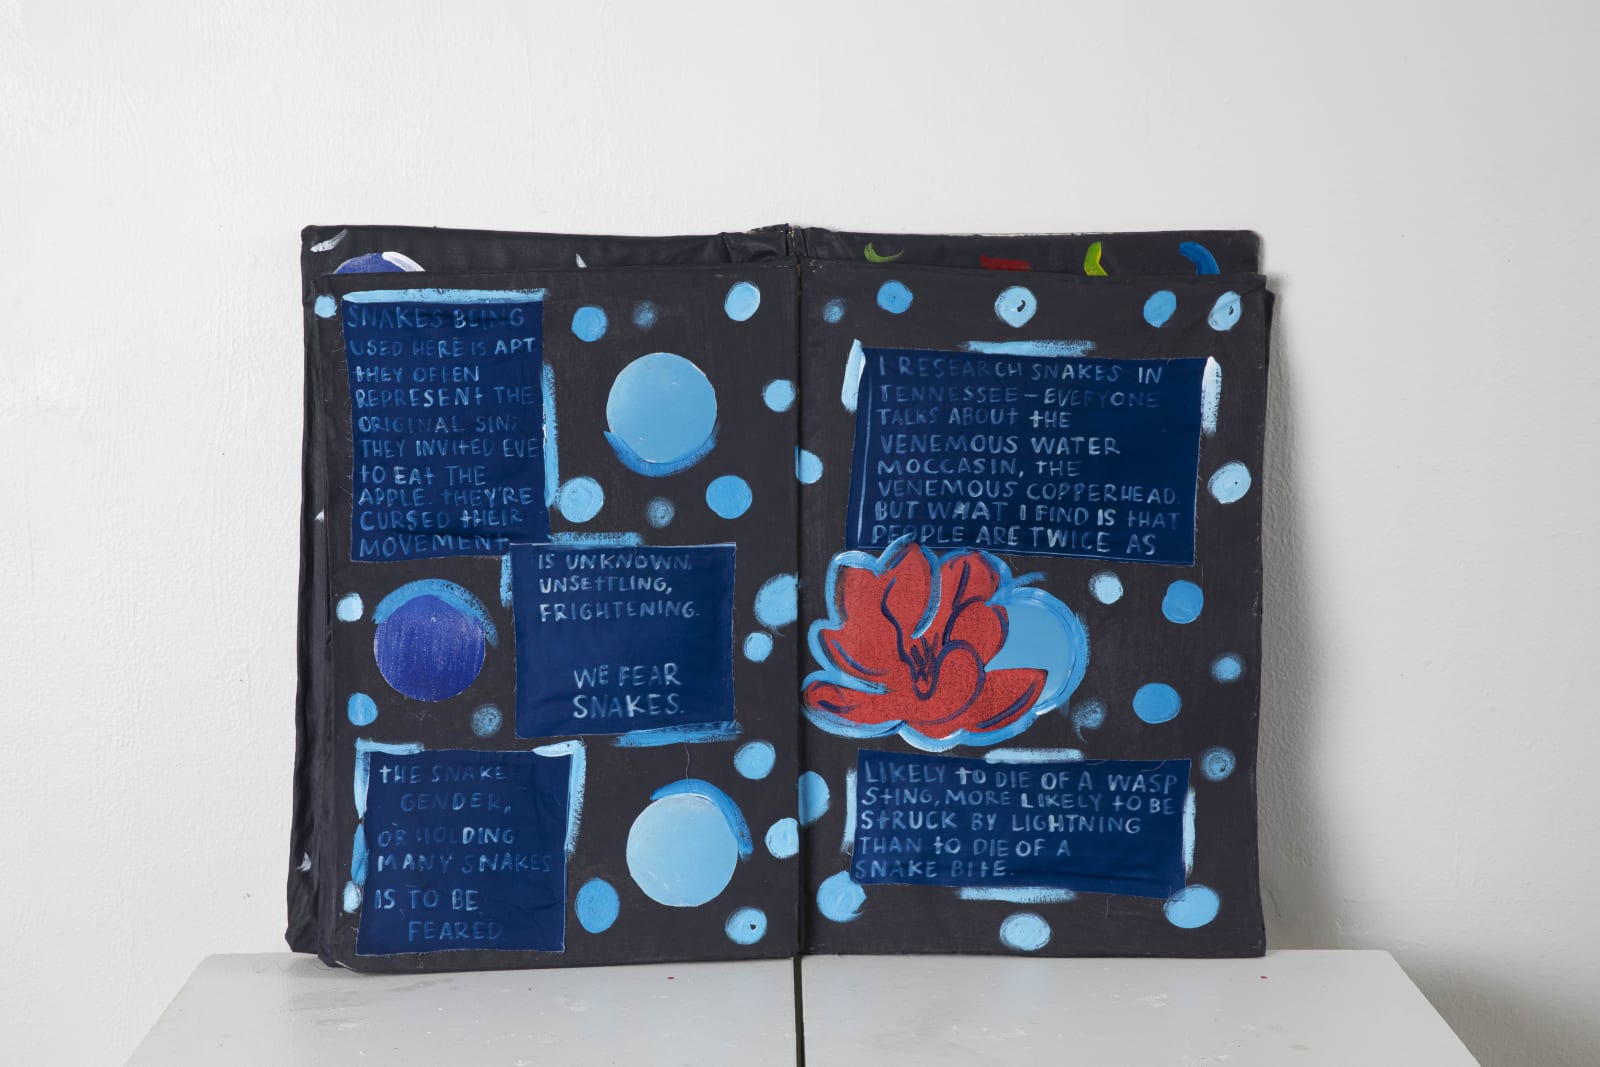 SNAKES BEING
USED HERE IS APT
THEY OFTEN
REPRESENT THE
ORIGINAL SIN;
THEY INVITED EVE
TO EAT THE
APPLE. THEY'RE
CURSED THEIR
MOVEMENT
IS UNKNOWN,
UNSETTLING,
FRIGHTENING.
WE FEAR
SNAKES.
THE SNAKE
GENDER,
OR HOLDING
MANY SNAKES
IS TO BE
FEARED.
I RESEARCH SNAKES IN
TENNESSEE – EVERYONE
TALKS ABOUT THE
VENEMOUS WATER
MOCCASIN, THE
VENEMOUS COPPERHEAD.
BUT WHAT I FIND IS THAT
PEOPLE ARE TWICE AS
LIKELY TO DIE OF A WASP
STING, MORE LIKELY TO BE
STRUCK BY LIGHTNING
THAN TO DIE OF A
SNAKE BITE.